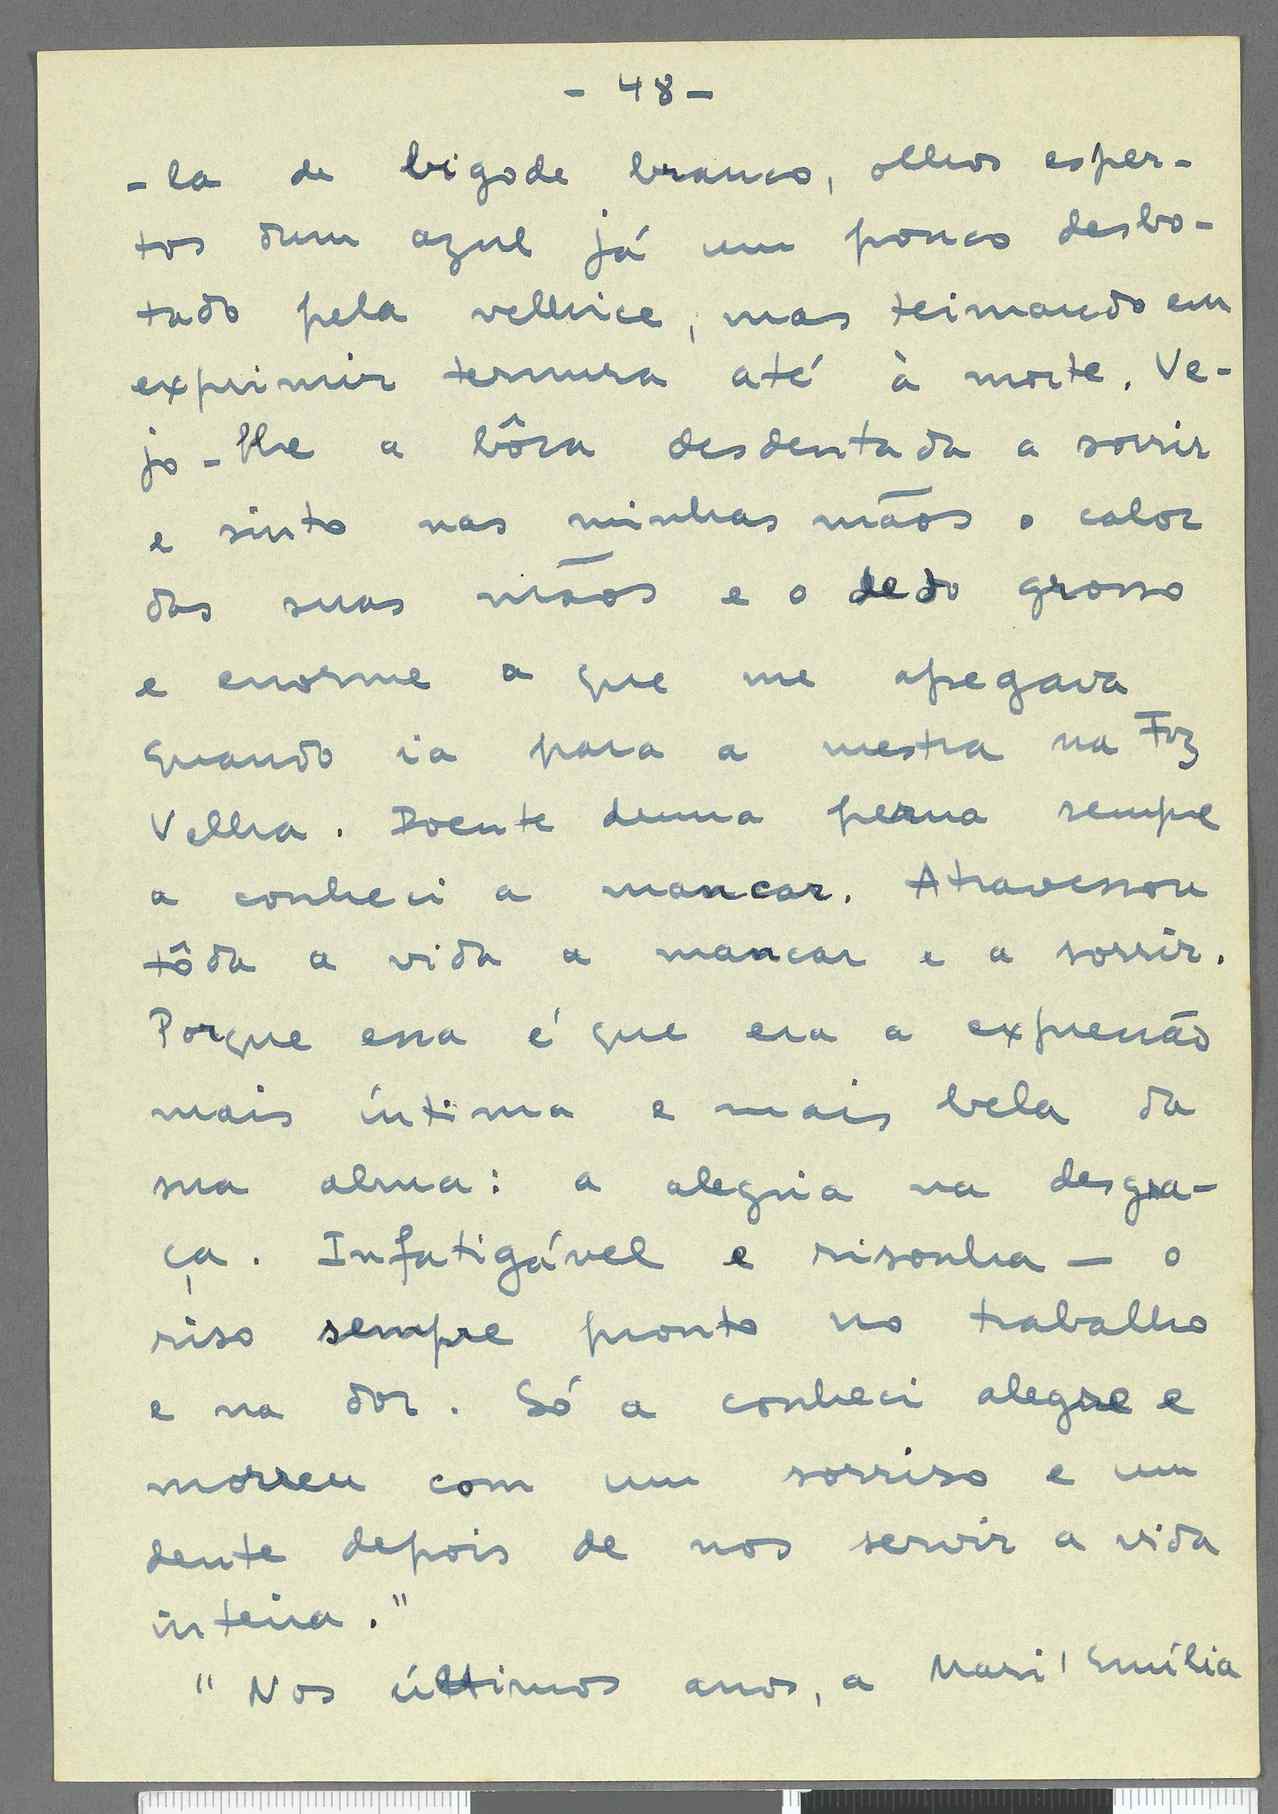 - 48 -
-la de bigode branco, olhos esper-
tos dum azul já um pouco desbo-
tado pela velhice, mas teimando em
exprimir ternura até à morte. Ve-
jo-lhe a bôca desdentada a sorrir
e sinto nas minhas mãos o calor
das suas mãos e o dedo grosso
e enorme a que me apegava
quando ia para a mestra na Foz
Velha. Doente duma perna sempre
a conheci a mancar. Atravessou
tôda a vida a mancar e a sorrir.
Porque essa é que era a expressão
mais íntima e mais bela da
sua alma: a alegria na desgra-
ça. Infatigável e risonha — o
riso sempre pronto no trabalho
e na dor. Só a conheci alegre e
morreu com um sorriso e um
dente depois de nos servir a vida
inteira."
"Nos últimos anos, a Mari'Emília